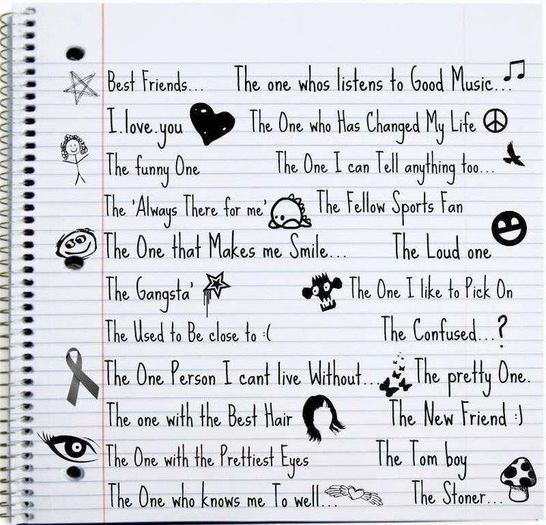 Best Friends... The one whos listens to Good Music...
I.love.you The One who Has Changed My Life
The funny One The One I can Tell anything too...
The 'Always There for me' The Fellow Sports Fan
The One that Makes me Smile... The Loud one
The Gangsta' The One I like to Pick On
The Used to Be close to :( The Confused...?
The One Person I cant live Without... The pretty One.
The one with the Best Hair The New Friend :)
The One with the Prettiest Eyes The Tom boy
The One who knows me To well... The Stoner...